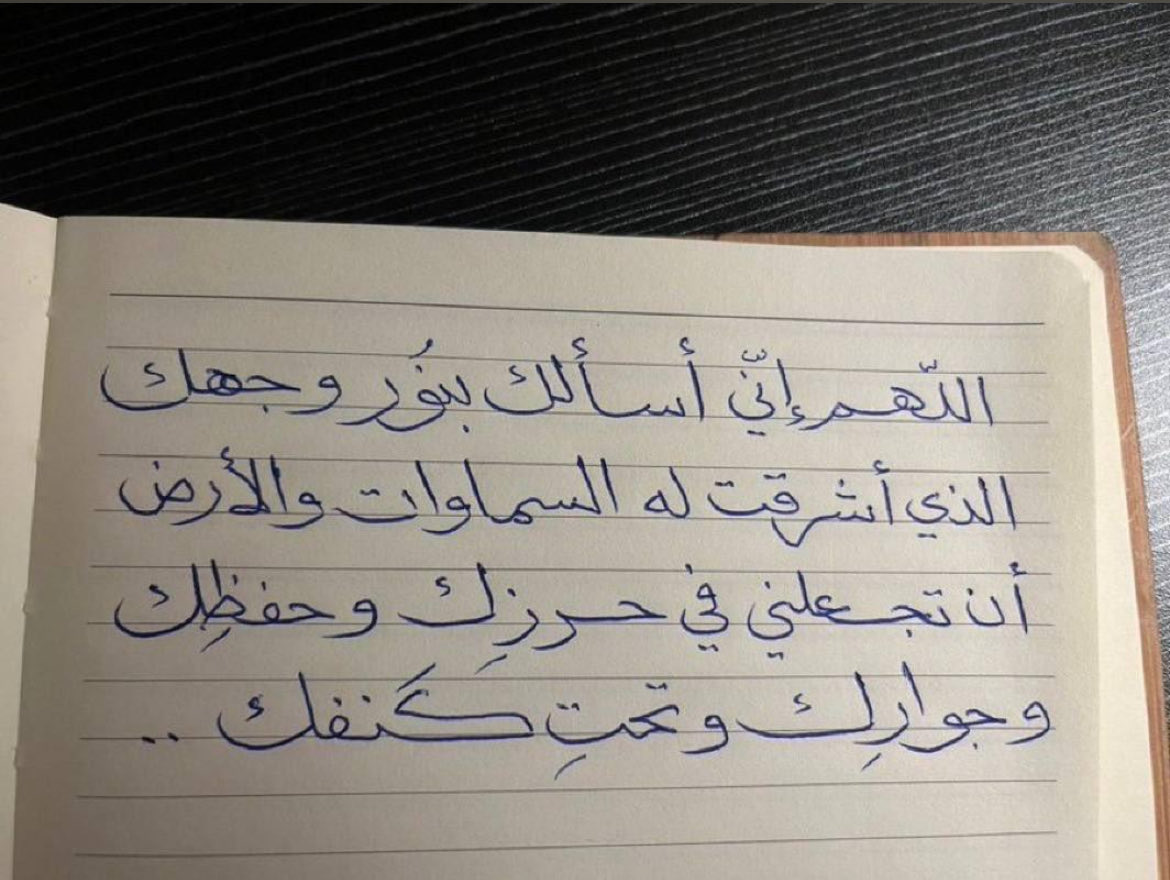 اللّهم إنّي أسألك بنُور وجهك
الذي أشرقت له السماوات والأرض
أن تجعلني في حرزِك وحفظِك
وجوارِك وتحتِ كَنفك ..